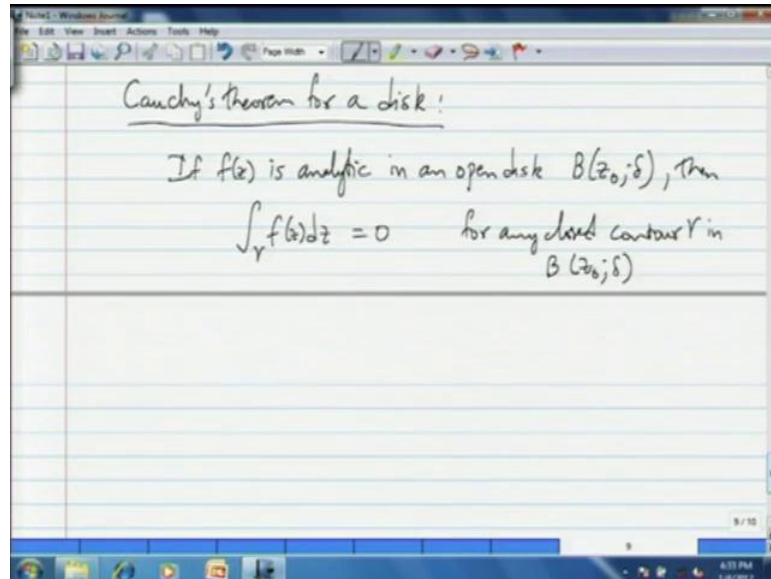 Note1 - Windows Journal
File Edit View Insert Actions Tools Help
Page Width
Cauchy's theorem for a disk:
If f(z) is analytic in an open disk B(z₀;δ), then
∫_γ f(z)dz = 0 for any closed contour γ in
B(z₀;δ)
9 / 10
9
4:33 PM